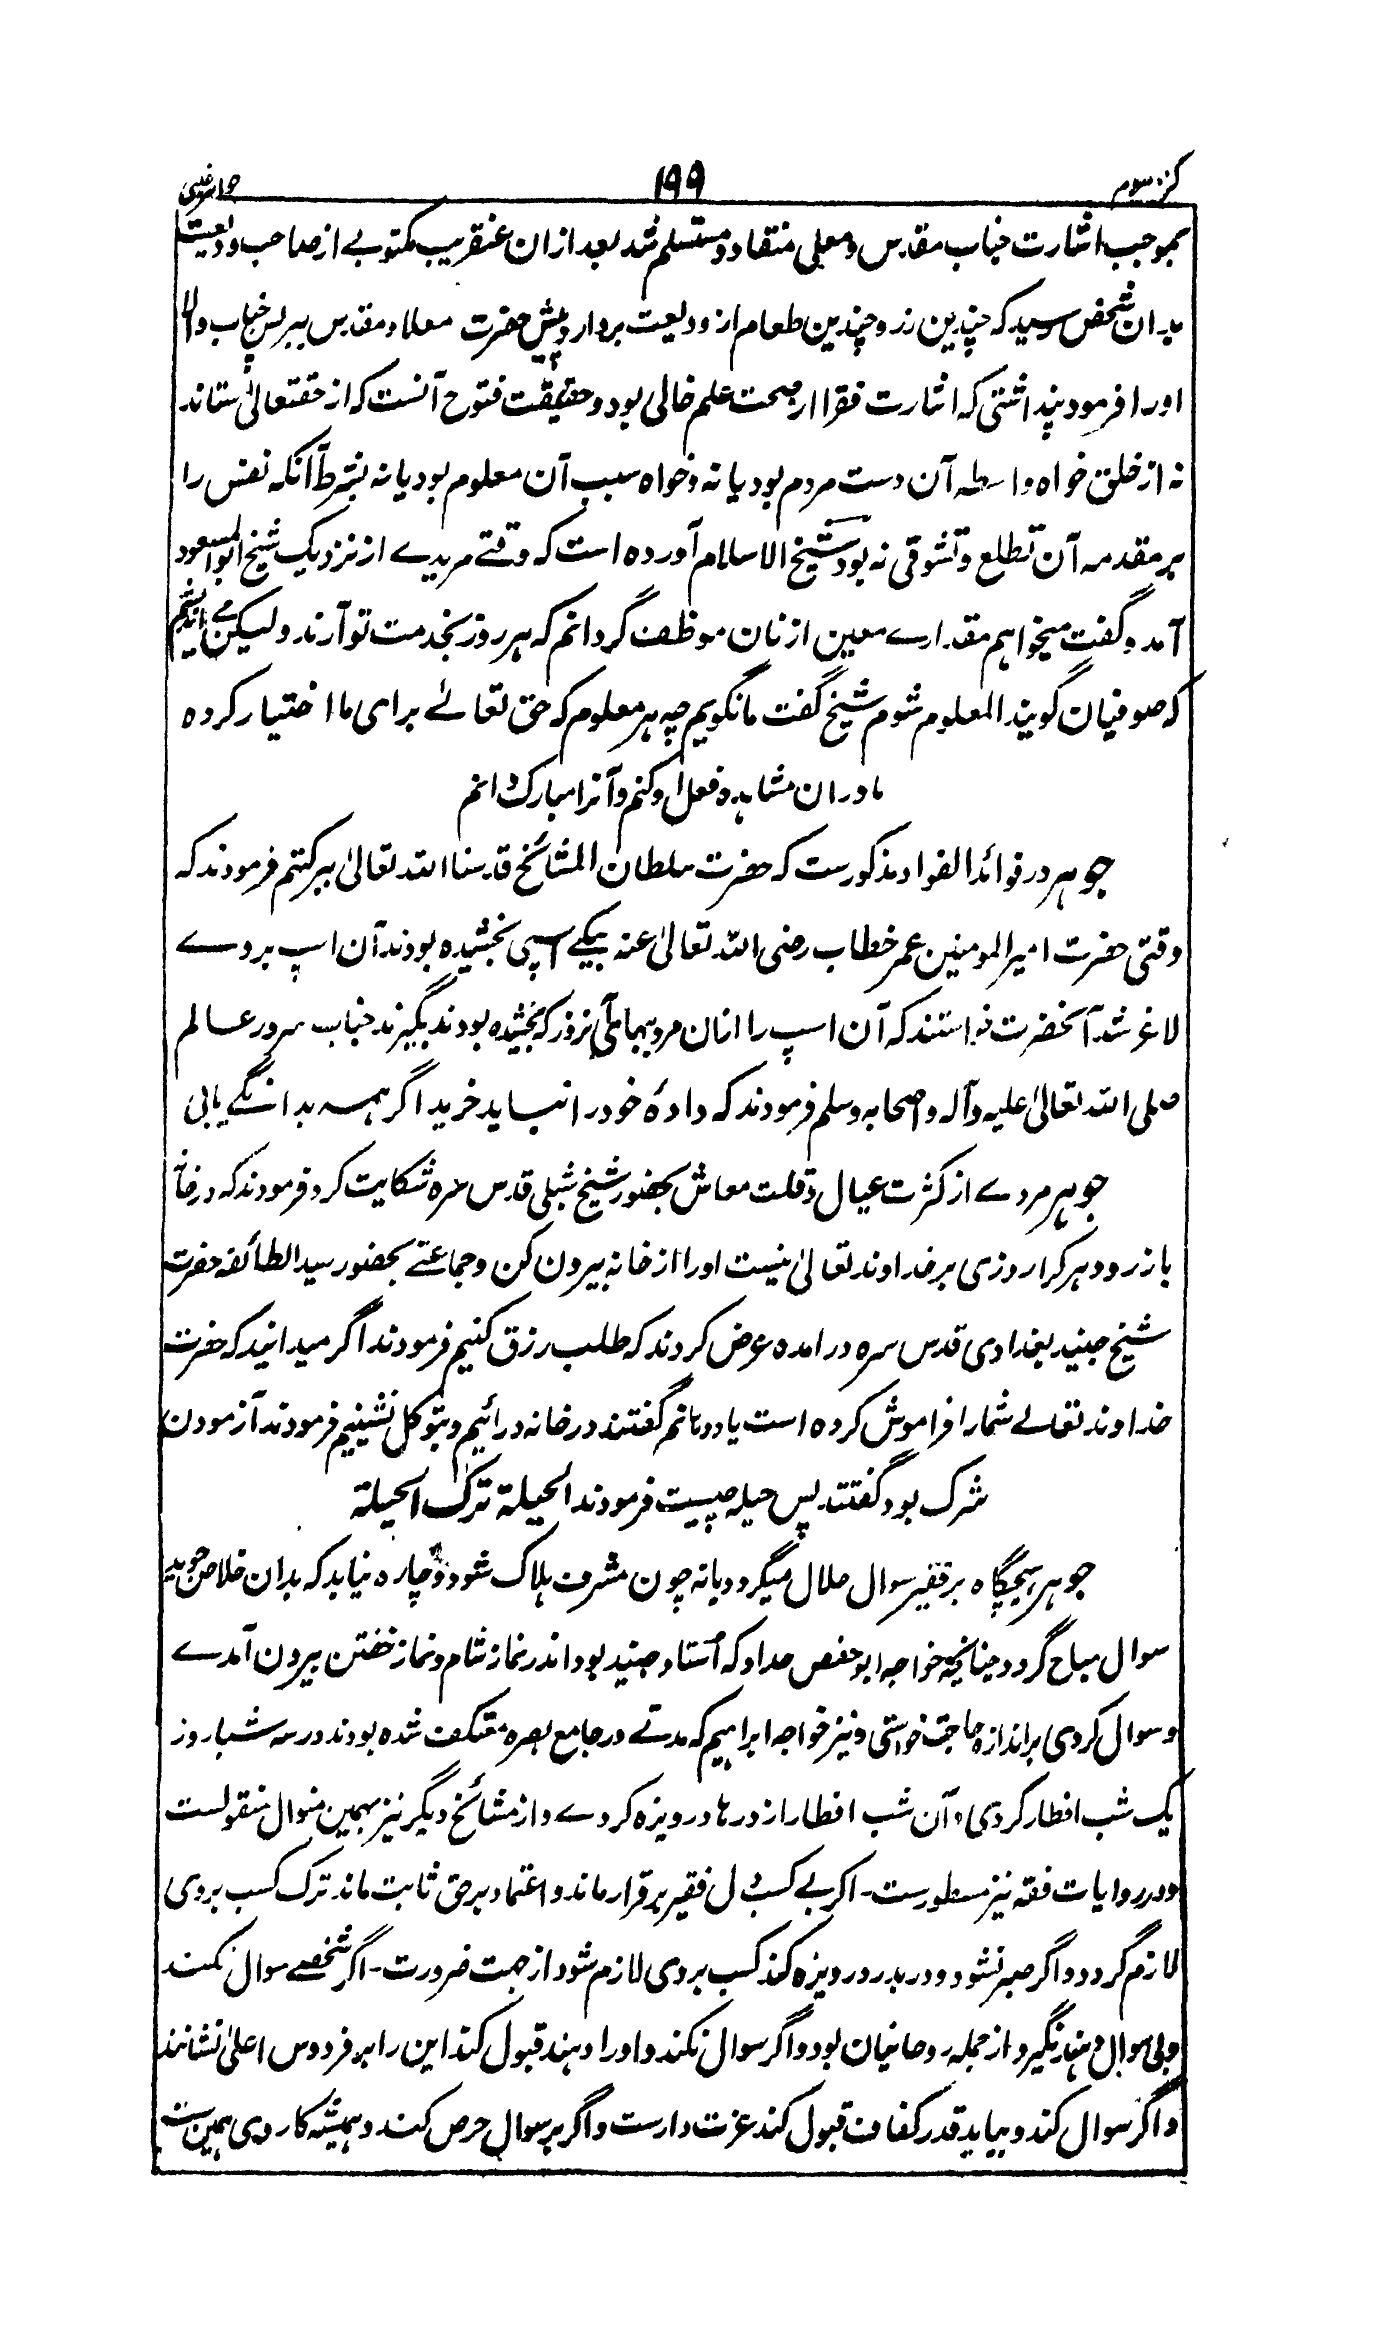 کنز سوم ۱۹۹ جواهر غیبی
بموجب اشارت جناب مقدس و معلی منقاد و مستسلم شد بعد ازان عنقریب مکتوبے از صاحب ودیعت
بدان شخص رسید که چندین زر و چندین طعام از ودیعت بردار و پیش حضرت معلا و مقدس ببر پس جناب والا
اورا فرمودند پنداشتی که اشارت فقرا از صحت علم خالی بود و حقیقت فتوح آنست که از حقتعالیٰ ستاند
نه از خلق خواه واسطه آن دست مردم بود یا نه و خواه سبب آن معلوم بود یا نه بشرط آنکه نفس را
بر مقدمه آن تطلع و تشوقی نه بود شیخ الاسلام آورده است که وقتے مریدے از نزدیک شیخ ابو السعود
آمد و گفت میخواهم مقدارے معین از نان موظف گردانم که هر روز بخدمت تو آرند ولیکن مے اندیشم
که صوفیان گویند المعلوم شوم شیخ گفت ما نگویم چه هر معلوم که حق تعالےٰ برای ما اختیار کرده
ما دران مشاهده فعل او کنم و آنرا مبارک دانم
جوهر در فوائد الفواد مذکورست که حضرت سلطان المشائخ قدسنا الله تعالیٰ ببرکتهم فرمودند که
وقتی حضرت امیر المومنین عمر خطاب رضی الله تعالیٰ عنه بیکے اسپی بخشیده بودند آن اسپ بر وے
لاغر شد آنحضرت خواستند که آن اسپ را ازان مرد ببهای آن زر که بخشیده بودند بگیرند جناب سرور عالم
صلی الله تعالیٰ علیه وآله واصحابه وسلم فرمودند که دادهٔ خود را نباید خرید اگر همه بدانگے یابی
جوهر مردے از کثرت عیال و قلت معاش بحضور شیخ شبلی قدس سره شکایت کرد فرمودند که در خانهٔ
باز رو و هر کرا روزی بر خداوند تعالیٰ نیست اورا از خانه بیرون کن و جماعتے بحضور سید الطائفه حضرت
شیخ جنید بغدادی قدس سره درامده عرض کردند که طلب رزق کنیم فرمودند اگر میدانید که حضرت
خداوند تعالےٰ شمارا فراموش کرده است یاد دهانم گفتند در خانه درائیم و بتوکل نشینیم فرمودند آزمودن
شرک بود گفتند پس حیله چیست فرمودند الحیلة ترک الحیلة
جوهر هیچگاه بر فقیر سوال حلال میگردد یا نه چون مشرف هلاک شود و چاره نیابد که بدان خلاص جوید
سوال مباح گردد چنانچه خواجه ابو حفص حداد که استاد جنید بود اندر نماز شام و نماز خفتن بیرون آمدے
و سوال کردی بر اندازه حاجت خواستی و نیز خواجه ابراهیم که مدتے در جامع بصره معتکف شده بودند در سه شباروز
یک شب افطار کردی و آن شب افطار از درها دریوزه کردے و از مشائخ دیگر نیز بهمین منوال منقولست
و در روایات فقه نیز مسطورست۔ اگر بے کسب دل فقیر برقرار ماند و اعتماد بر حق ثابت ماند ترک کسب بر وی
لازم گردد و اگر صبر نشود و در بدر دریوزه کند کسب بر وی لازم شود از جهت ضرورت۔ اگر شخصے سوال نکند
و بی سوال دهند نگیرد از جمله روحانیان بود و اگر سوال نکند و اورا دهند قبول کند این را بر فردوس اعلیٰ نشانند
و اگر سوال کند و بیابد قدر کفاف قبول کند عزت دارست و اگر بر سوال حرص کند و همیشه کار وی همین ست